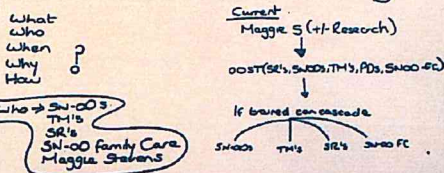 What
Who
When
Why
How
?
Who → SN-OOs
TM's
SR's
SN-OO Family Care
Maggie Stevens
Current
Maggie S (+/- Research)
↓
OOST (SR's, SNODs, TM's, PDs, SNOO-FC)
↓
If trained can cascade
SNOODs TM's SR's SNOO FC